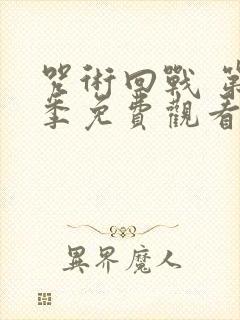 咒術回戰 第
季免費觀看
異界魔人